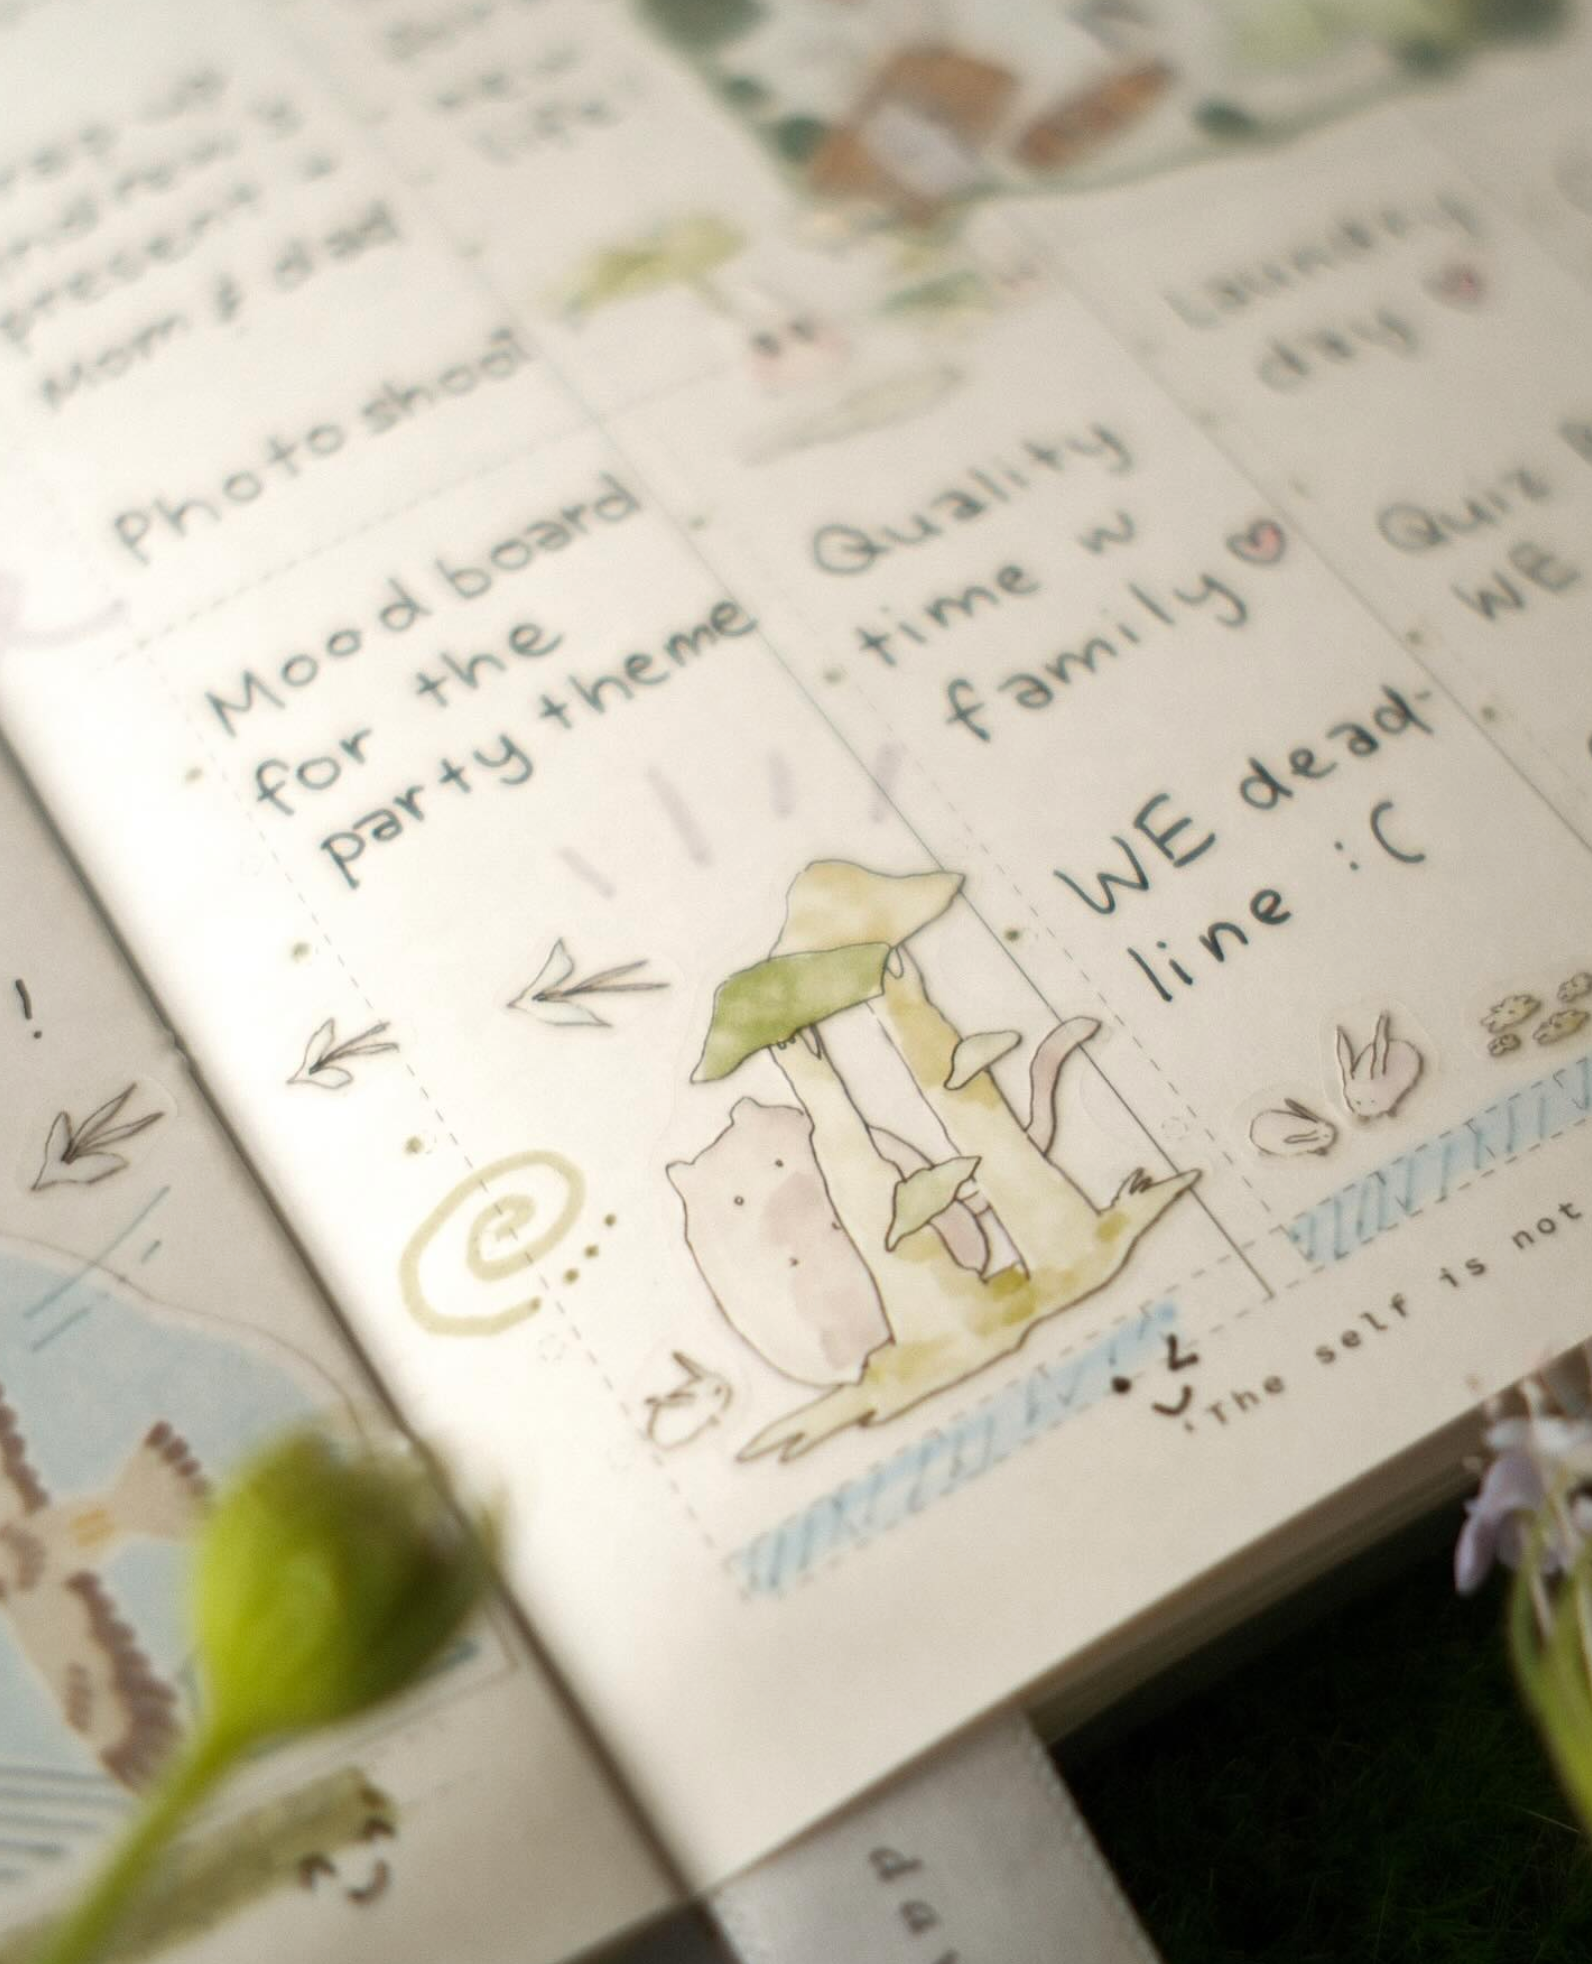 present
Mom & dad
Photoshoot
Mood board
for the
party theme
life
Quality
time w
family
WE dead-
line :(
Laundry
day
Quiz
WE
!
The self is not